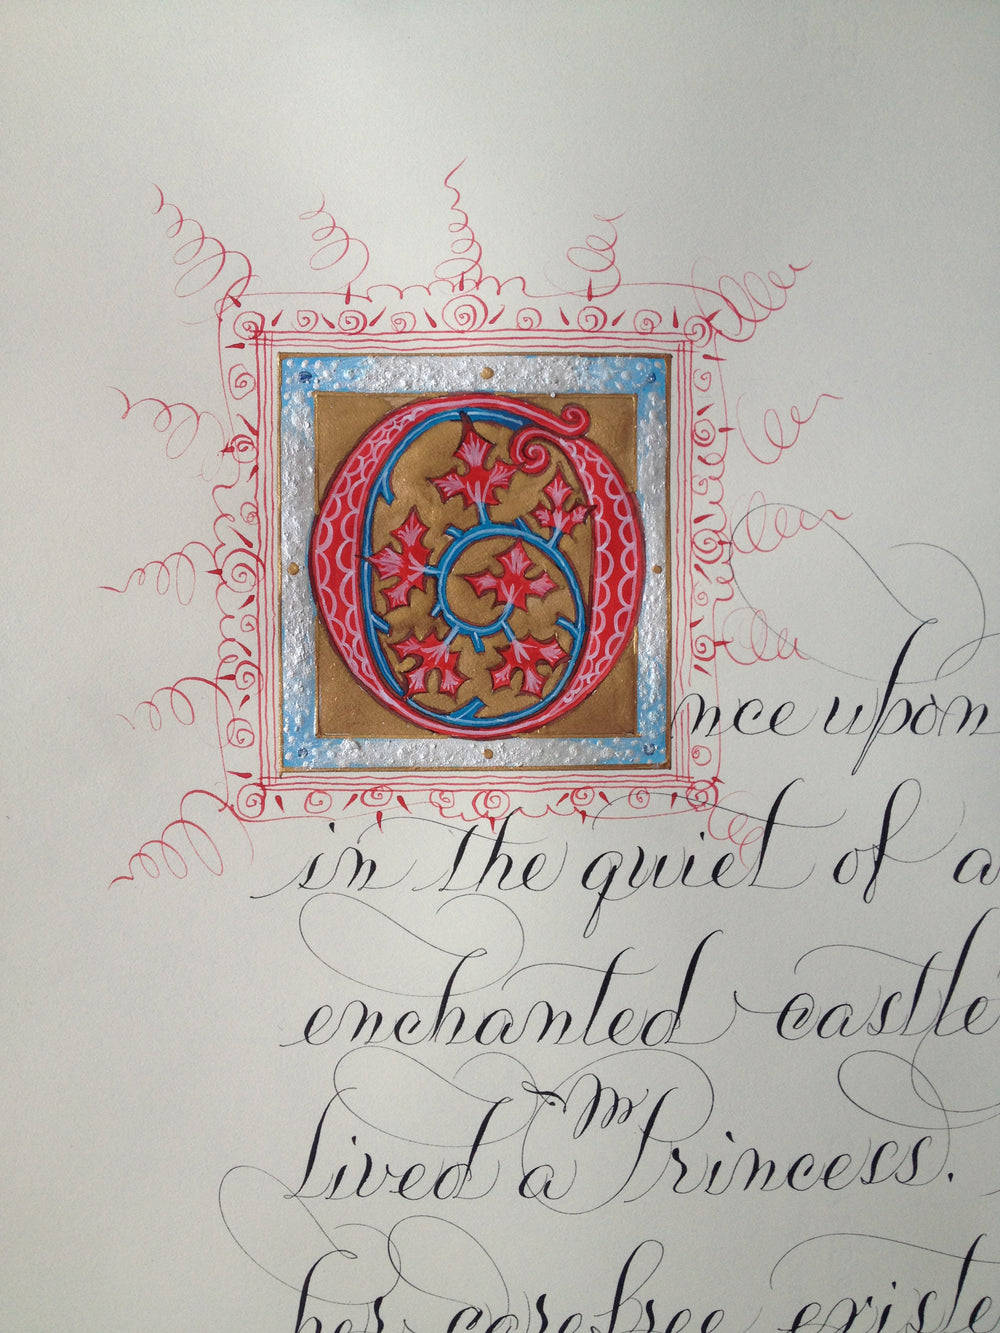 Once upon
in the quiet of a
enchanted castle
lived a Princess.
her carefree existe